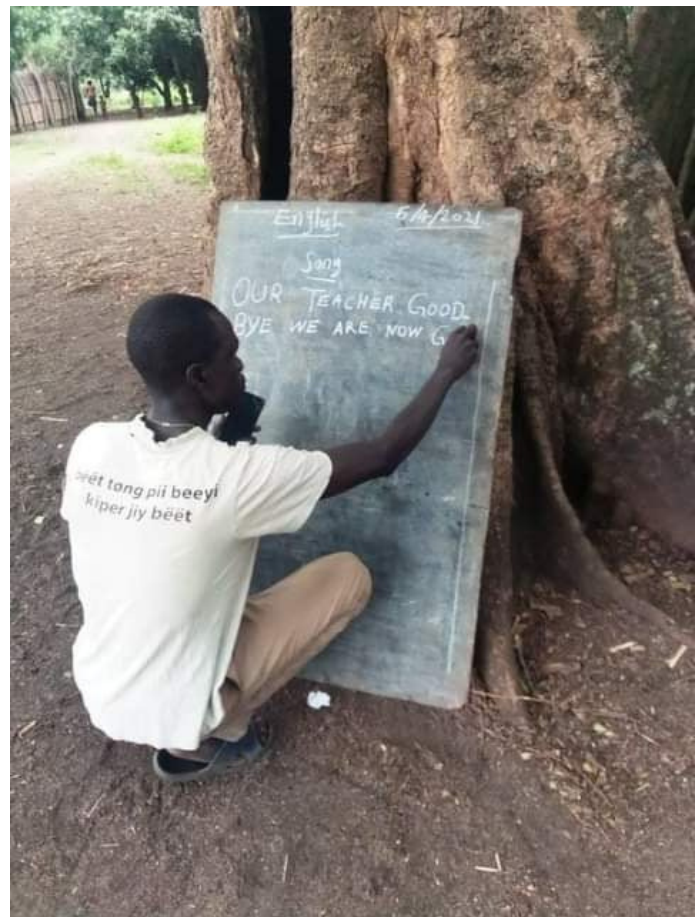 English 5/4/2021
Song
OUR TEACHER GOOD
BYE WE ARE NOW G
bëët tøng pïï beeyi
kiper jiy bëët